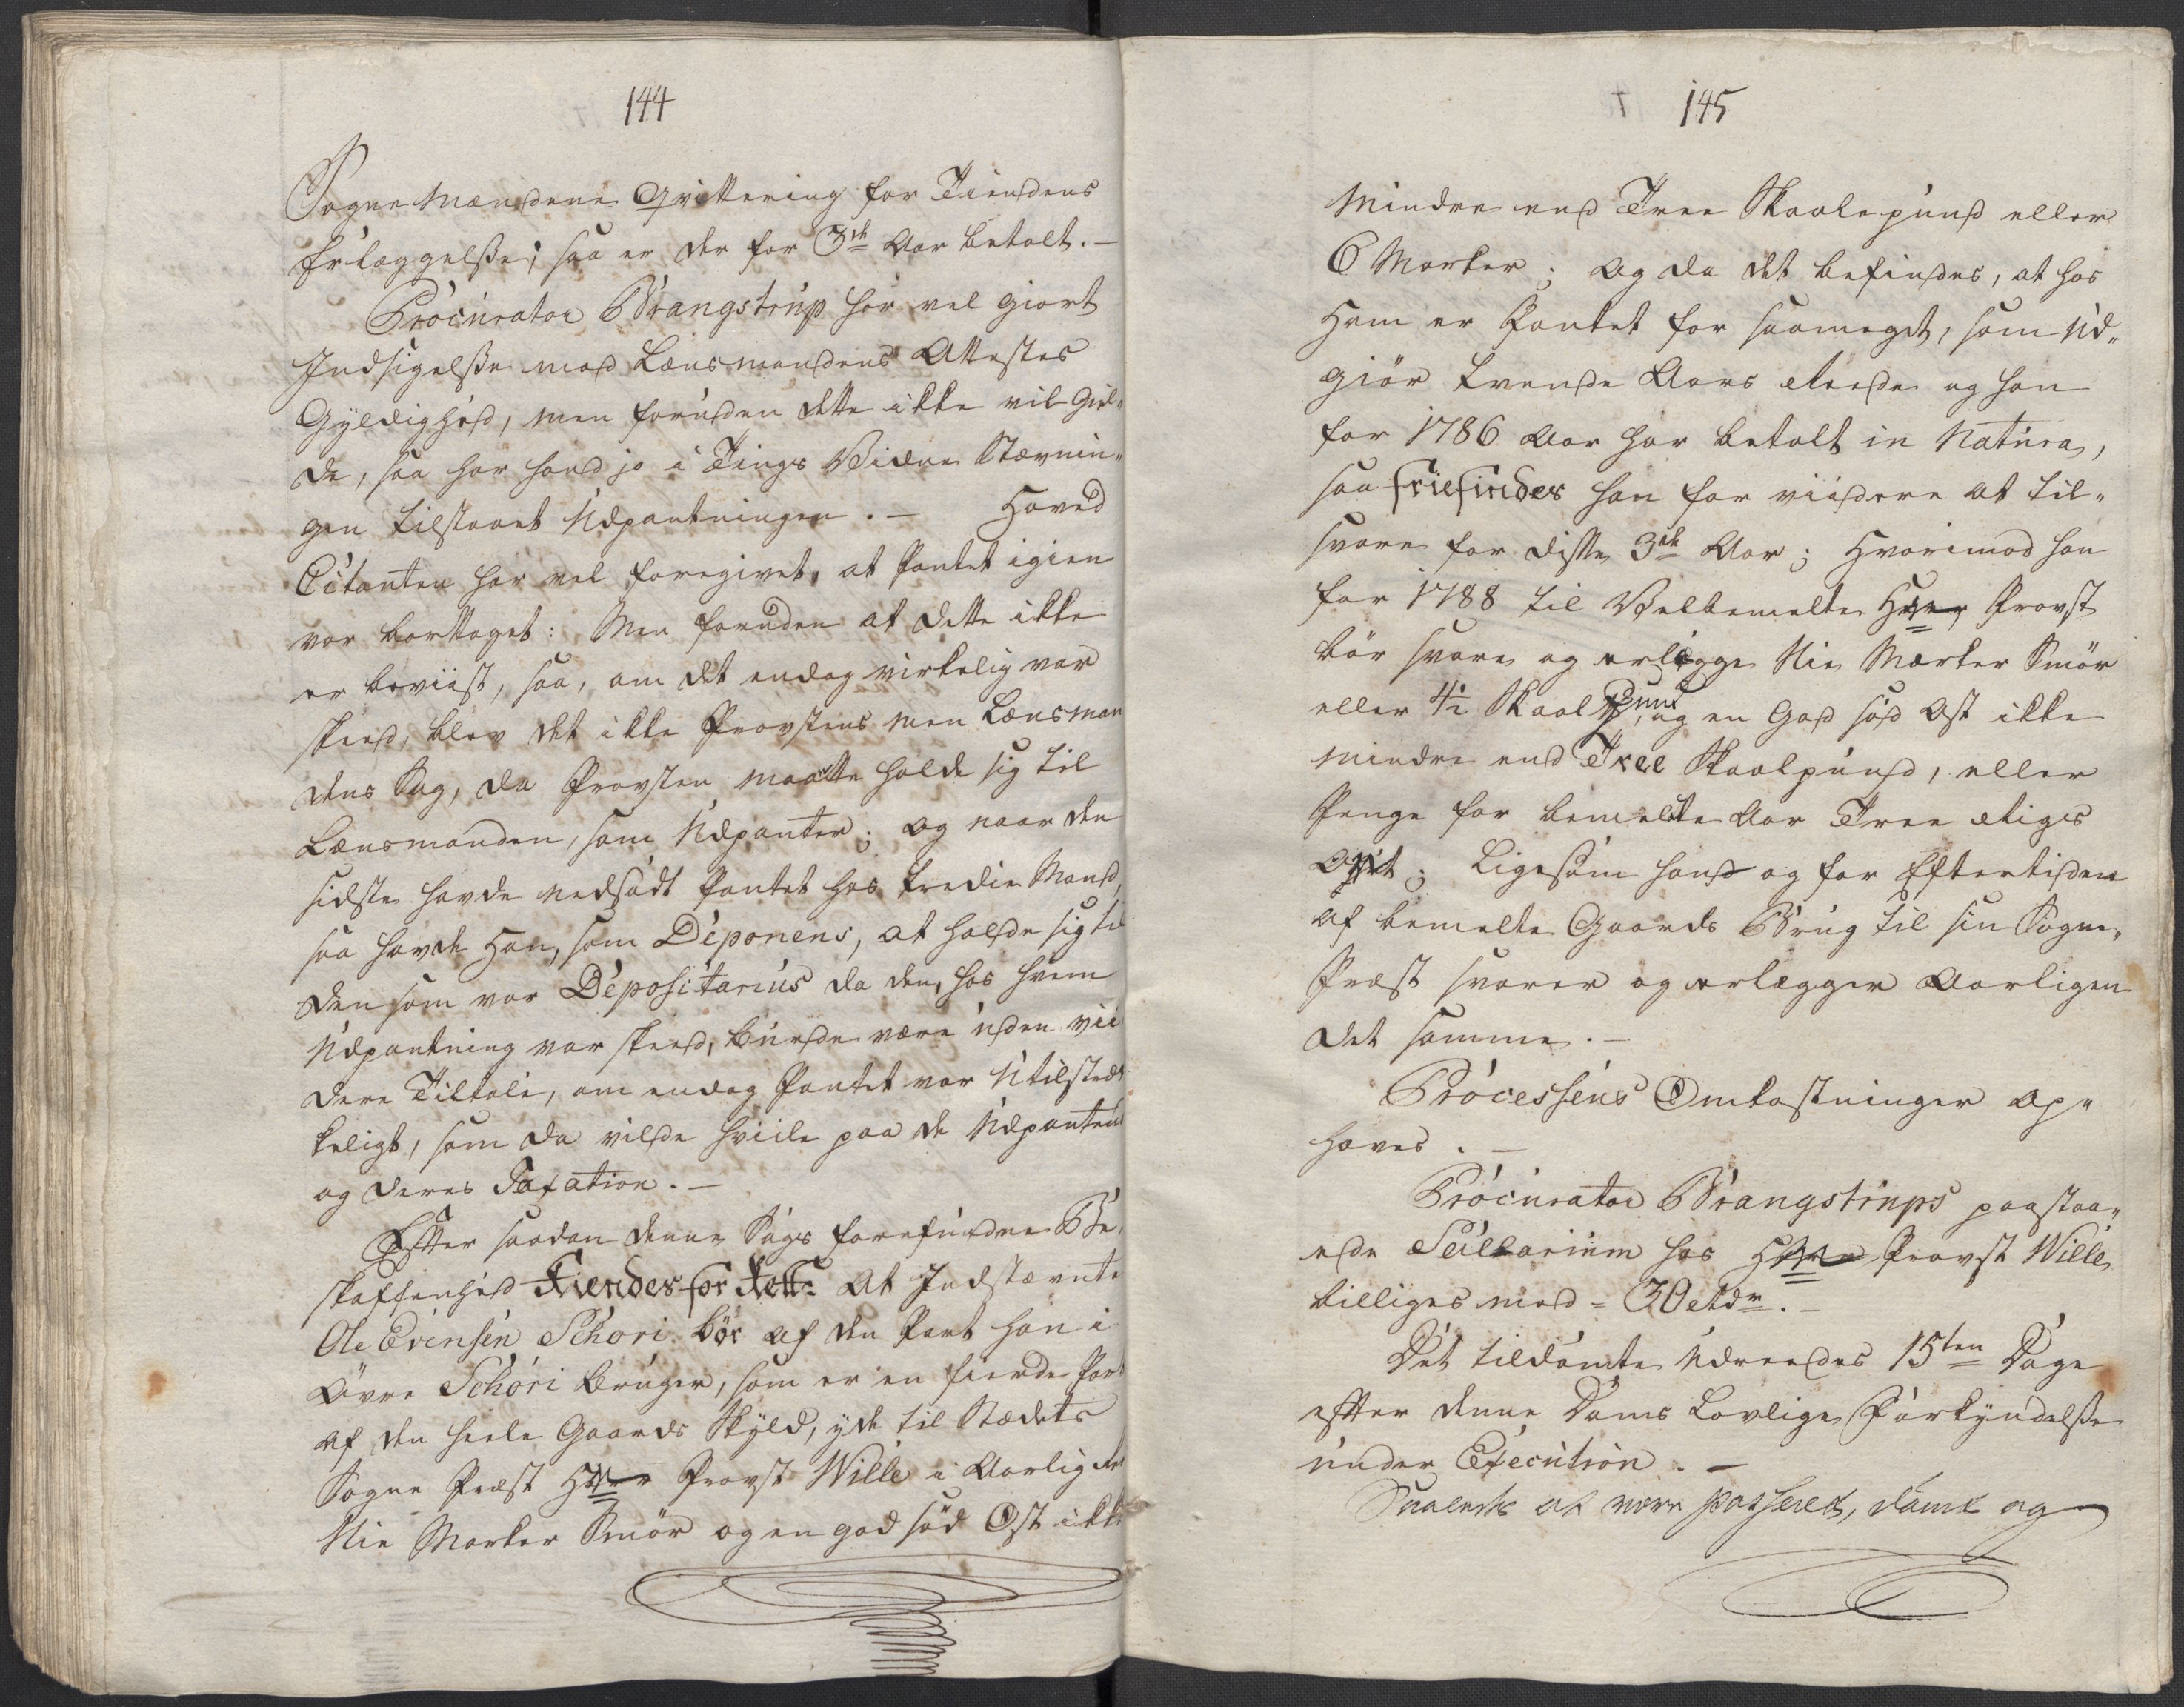 144
Sogne Mændene Qvittering for Tiendens
Erlæggelsse; saa er der for 3de Aar betalt. —
Procurator Brangstrup har vel giort
Indsigelsse mod Lensmandens Attestes
Gyldighed, men foruden dette ikke vil giel„
de, saa har hand jo i Tings Vidne Stevnin„
gen tilstaaet Udpantningen. — Hoved
Citanten har vel foregivet, at Pantet igien
var borttaget: Men foruden at dette ikke
er beviist, saa, om det endog virkelig var
skeed, blev det ikke Provstens men Lensman
dens Sag, da Provsten maatte holde sig til
Lensmanden, som Udpanter; og naar den
sidste havde nedsadt Pantet hos tredie Mand,
saa havde Han, som Deponens, at holde sig til
den som var Depositarius da den, hos hvem
Udpantning var skeed, burde være uden vii
dere Tiltale, om endog Pantet var Utilstræk
keligt, som da vilde hviile paa de Udpantend
og deres Taxation. —
Efter saadan denne Sags forefundne Be„
skaffenhed Kiendes for Rett: At Indstevnte
Ole Evensen Schori bør af den Part han i
Øvre Schori bruger, som er en fierde Part
af den heele Gaards Skyld, yde til Stædets
Sogne Præst Herr Provst Wille i Aarlig
Nie Marker Smør og en god sød Ost ikke
145
Mindre end Tree Skaalepund eller
6 Marker; og da det befindes, at hos
Ham er Pantet for saameget, som Ud„
giør trende Aars Reede og han
for 1786 Aar har betalt in Natura,
saa friefindes han for viidere at til„
svare for disse 3de Aar; Hvorimod han
for 1788 til Velbemelte Herr Provst
bør svare og erlegge Nie Marker Smør
eller 4½ Skaal Pund, og en God sød Ost ikke
mindre end Tree Skaalpund, eller
Penge for bemelte Aar Tree Riges
Ort; Ligesom hand og for Eftertiden
af bemelte Gaards Brug til sin Sogne„
Præst svarer og erlegger Aarligen
det samme. —
Processens Omkostninger op„
haves. —
Procurator Brangstrups paastaa„
ede Sallarium hos Herr Provst Wille
billiges med = 30 Rdr. —
Det tildømte Udreedes 15ten Dage
efter denne Doms Lovlige Forkyndelsse
under Execution. —
Saaledes at være passeret, dømt og